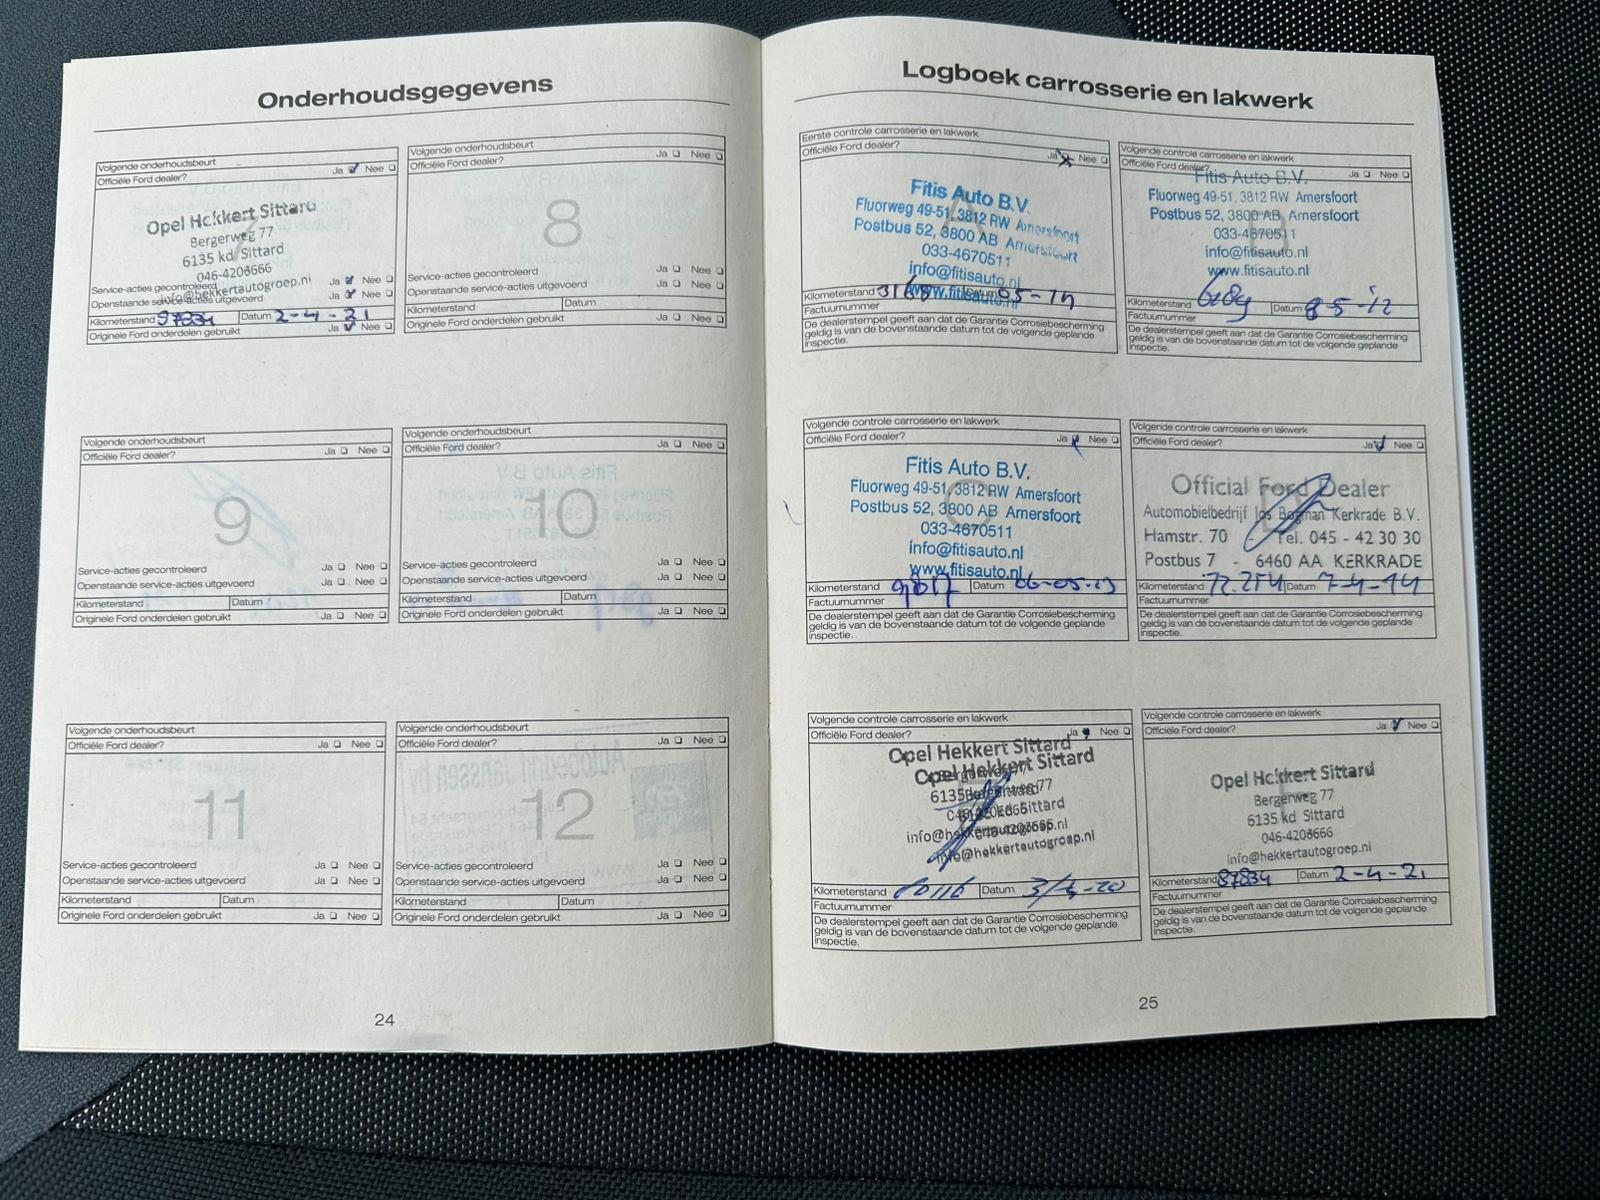 Onderhoudsgegevens
Volgende onderhoudsbeurt
Officiële Ford dealer? Ja Nee
Opel Hekkert Sittard
Bergerweg 77
6135 kd Sittard
046-4206666
info@hekkertautogroep.nl
Service-acties gecontroleerd Ja Nee
Openstaande service-acties uitgevoerd Ja Nee
Kilometerstand Datum 2-4-21
Originele Ford onderdelen gebruikt Ja Nee
Volgende onderhoudsbeurt
Officiële Ford dealer? Ja Nee
8
Service-acties gecontroleerd Ja Nee
Openstaande service-acties uitgevoerd Ja Nee
Kilometerstand Datum
Originele Ford onderdelen gebruikt Ja Nee
Volgende onderhoudsbeurt
Officiële Ford dealer? Ja Nee
9
Service-acties gecontroleerd Ja Nee
Openstaande service-acties uitgevoerd Ja Nee
Kilometerstand Datum
Originele Ford onderdelen gebruikt Ja Nee
Volgende onderhoudsbeurt
Officiële Ford dealer? Ja Nee
10
Service-acties gecontroleerd Ja Nee
Openstaande service-acties uitgevoerd Ja Nee
Kilometerstand Datum
Originele Ford onderdelen gebruikt Ja Nee
Volgende onderhoudsbeurt
Officiële Ford dealer? Ja Nee
11
Service-acties gecontroleerd Ja Nee
Openstaande service-acties uitgevoerd Ja Nee
Kilometerstand Datum
Originele Ford onderdelen gebruikt Ja Nee
Volgende onderhoudsbeurt
Officiële Ford dealer? Ja Nee
12
Service-acties gecontroleerd Ja Nee
Openstaande service-acties uitgevoerd Ja Nee
Kilometerstand Datum
Originele Ford onderdelen gebruikt Ja Nee
24
Logboek carrosserie en lakwerk
Eerste controle carrosserie en lakwerk
Officiële Ford dealer? Ja Nee
Fitis Auto B.V.
Fluorweg 49-51, 3812 RW Amersfoort
Postbus 52, 3800 AB Amersfoort
033-4670511
info@fitisauto.nl
www.fitisauto.nl
Kilometerstand Datum
Factuurnummer
De dealerstempel geeft aan dat de Garantie Corrosiebescherming
geldig is van de bovenstaande datum tot de volgende geplande
inspectie.
Volgende controle carrosserie en lakwerk
Officiële Ford dealer? Ja Nee
Fitis Auto B.V.
Fluorweg 49-51, 3812 RW Amersfoort
Postbus 52, 3800 AB Amersfoort
033-4670511
info@fitisauto.nl
www.fitisauto.nl
Kilometerstand Datum 8-5-12
Factuurnummer
De dealerstempel geeft aan dat de Garantie Corrosiebescherming
geldig is van de bovenstaande datum tot de volgende geplande
inspectie.
Volgende controle carrosserie en lakwerk
Officiële Ford dealer? Ja Nee
C
Fitis Auto B.V.
Fluorweg 49-51, 3812 RW Amersfoort
Postbus 52, 3800 AB Amersfoort
033-4670511
info@fitisauto.nl
www.fitisauto.nl
Kilometerstand Datum 06-05-13
Factuurnummer
De dealerstempel geeft aan dat de Garantie Corrosiebescherming
geldig is van de bovenstaande datum tot de volgende geplande
inspectie.
Volgende controle carrosserie en lakwerk
Officiële Ford dealer? Ja Nee
Official Ford Dealer
Automobielbedrijf Jos Bogman Kerkrade B.V.
Hamstr. 70 - Tel. 045 - 42 30 30
Postbus 7 - 6460 AA KERKRADE
Kilometerstand 72.254 Datum 7-4-14
Factuurnummer
De dealerstempel geeft aan dat de Garantie Corrosiebescherming
geldig is van de bovenstaande datum tot de volgende geplande
inspectie.
Volgende controle carrosserie en lakwerk
Officiële Ford dealer? Ja Nee
Opel Hekkert Sittard
Opel Hekkert Sittard
info@hekkertautogroep.nl
Kilometerstand Datum 3/4-20
Factuurnummer
De dealerstempel geeft aan dat de Garantie Corrosiebescherming
geldig is van de bovenstaande datum tot de volgende geplande
inspectie.
Volgende controle carrosserie en lakwerk
Officiële Ford dealer? Ja Nee
Opel Hekkert Sittard
Bergerweg 77
6135 kd Sittard
046-4206666
info@hekkertautogroep.nl
Kilometerstand 87834 Datum 2-4-21
Factuurnummer
De dealerstempel geeft aan dat de Garantie Corrosiebescherming
geldig is van de bovenstaande datum tot de volgende geplande
inspectie.
25